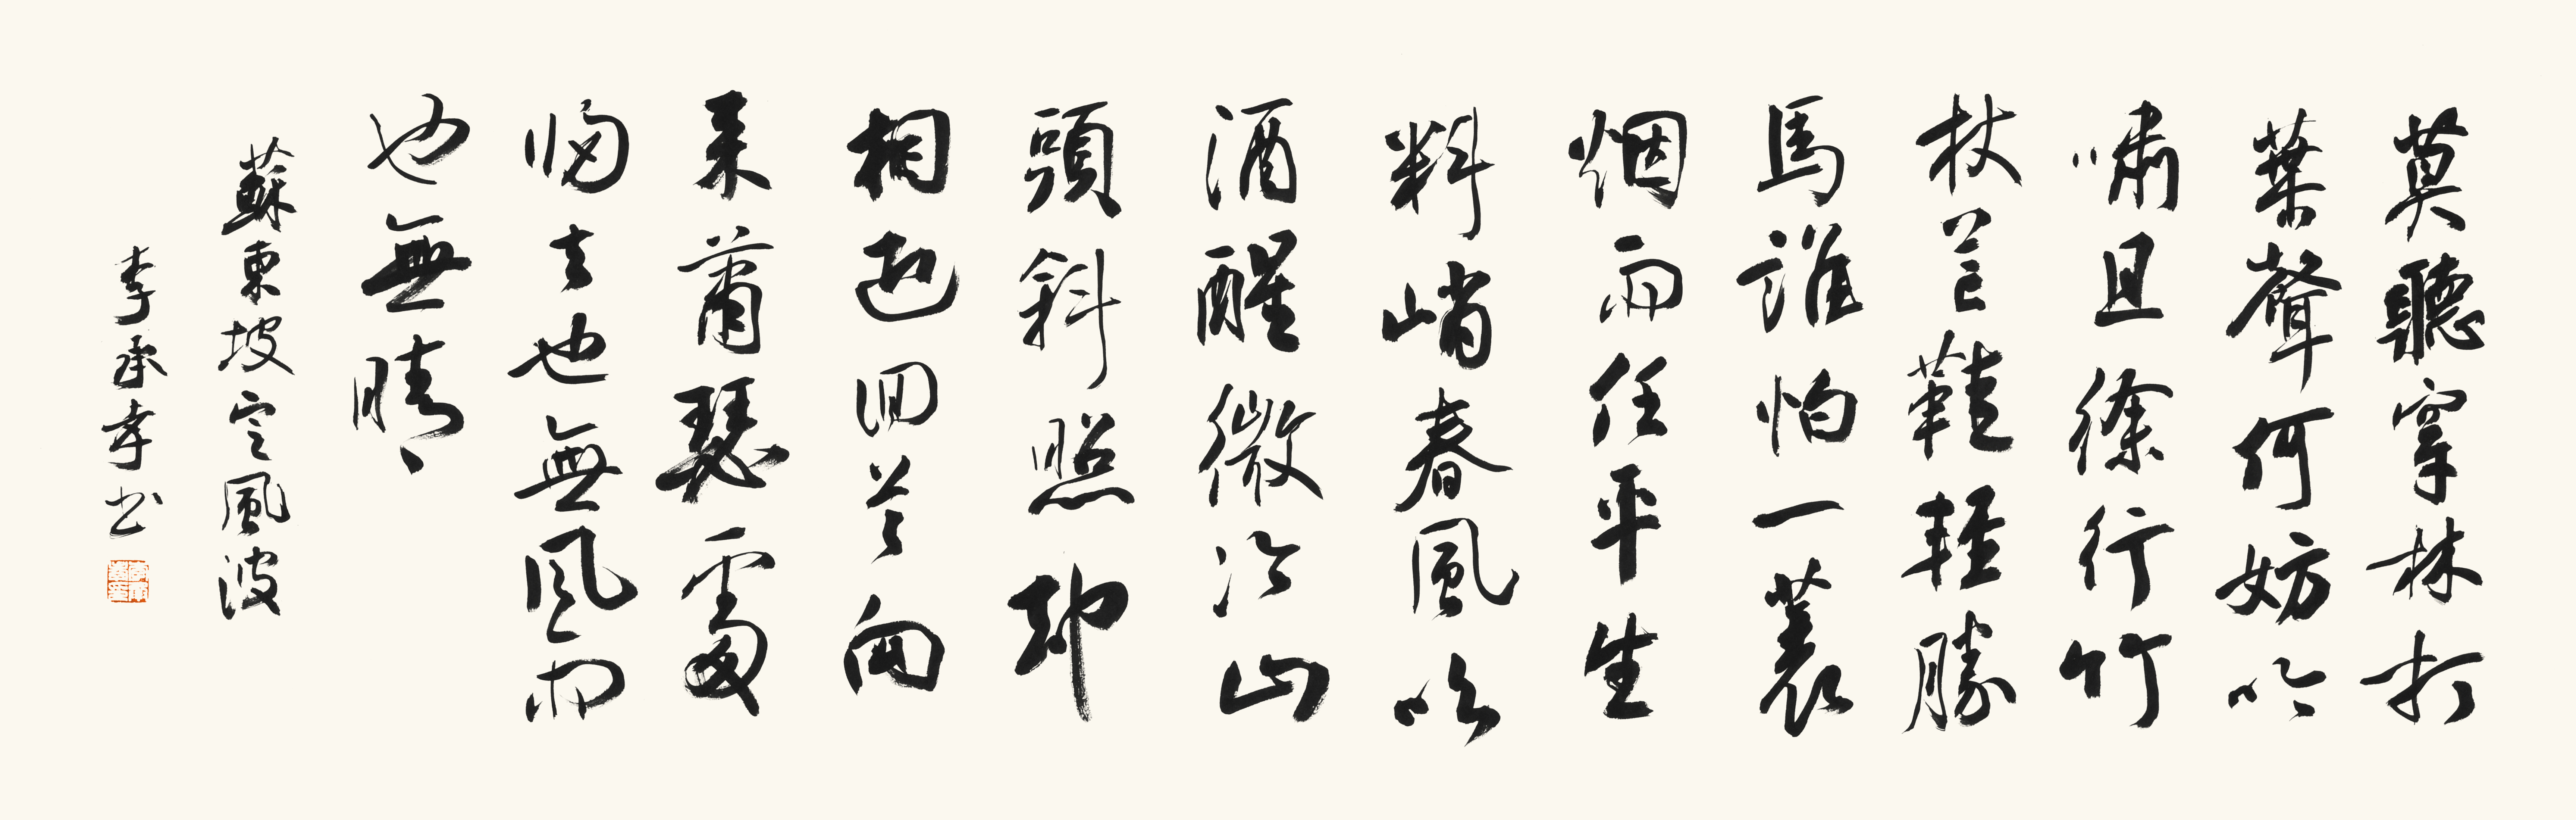 莫聽穿林打
葉聲何妨吟
嘯且徐行竹
杖芒鞋輕勝
馬誰怕一蓑
烟雨任平生
料峭春風吹
酒醒微冷山
頭斜照却
相迎回首向
来蕭瑟處
歸去也無風雨
也無晴
蘇東坡定風波
李承孝书